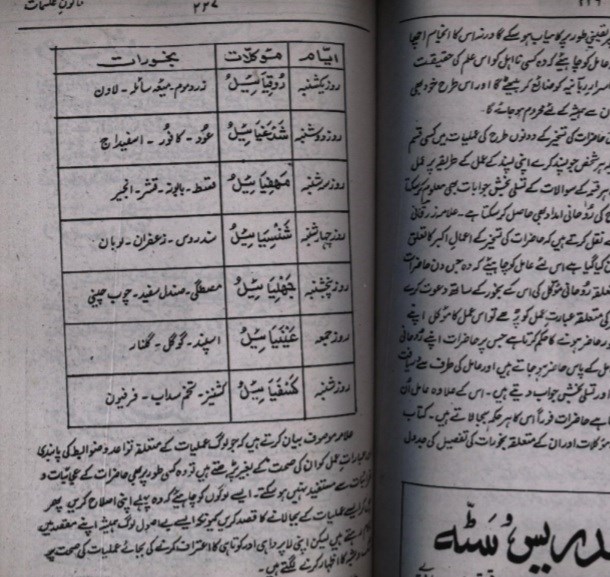 ۲۲۷
ایام مؤکلات بخورات
روز یکشنبہ رُوقِیَا ئِیْلُ زردموم - میعہ سائلہ - لاون
روز دوشنبہ شَدَغْیَا ئِیْلُ عُود - کافور - اسفیداج
روز سہ شنبہ مَھْفِیَا ئِیْلُ قسط - بابونہ - قشر انجیر
روز چہارشنبہ شَنْسِیَا ئِیْلُ سندروس - زعفران - لوبان
روز پنجشنبہ جَھْلِیَا ئِیْلُ مصطگی - صندل سفید - چوب چینی
روز جمعہ عَیْنِیَا ئِیْلُ اسپند - گوگل - گلنار
روز شنبہ کَسْفَیَا ئِیْلُ کشنیز - تخم سداب - فرفیون
علامہ موصوف بیان کرتے ہیں کہ جو لوگ عملیات کے متعلقہ قواعد و ضوابط کی پابندی
عبارات عمل کو ان کی صحت کے بغیر پڑھتے ہیں تو وہ کسی طور پر بھی حاضرات کے عجائبات و
سے مستفید نہیں ہو سکتے۔ ایسے لوگوں کو چاہئے کہ وہ پہلے اپنی اصلاح کریں پھر
ایسے عملیات کے بجا لانے کا قصد کریں کیونکہ ایسے بے اصول لوگ ہمیشہ اپنے مقصد میں
ہیں لیکن اپنی لاپرواہی اور کوتاہی کا اعتراف کرنے کی بجائے عملیات کی صحت پر
کا اظہار کرنے لگتے ہیں۔
یقینی طور پر کامیاب ہو سکے گا ورنہ اس کا انجام اچھا
عامل کو چاہئے کہ وہ کسی نااہل کو اس علم کی حقیقت
اسرار ربانیہ کو ضائع کر بیٹھے گا اور اس طرح خود بھی
سے ہمیشہ کے لئے محروم ہو جائے گا۔
حاضرات کی تسخیر کے دونوں طرح کی عملیات میں کسی قسم
ہر شخص جو پسند کرے اپنی پسند کے عمل کے طریقہ پر عمل
ہر قسم کے سوالات کے تسلی بخش جوابات بھی معلوم کر سکتا
کی روحانی امداد بھی حاصل کر سکتا ہے۔ علامہ
نقل کرتے ہیں کہ حاضرات کی تسخیر کے اعمال اکبر کا تعلق
کیا گیا ہے اس لئے عامل کو چاہئے کہ وہ جس دن حاضرات
متعلقہ روحانی مؤکل کی اس کے بخور کے ساتھ دعوت کرے
کی متعلقہ عبارت عمل کو پڑھے تو اس عمل کا مؤکل اپنے
اور حاضر ہونے کا حکم کرتا ہے جس پر حاضرات اپنے روحانی
عامل کے پاس حاضر ہو جاتے ہیں اور عامل کی طرف سے
اور تسلی بخش جواب دیتے ہیں۔ اس کے علاوہ عامل ان
ہے حاضرات فوراً اس کا ہر حکم بجا لاتے ہیں۔ کتاب
مؤکلات اور ان کے متعلقہ بخورات کی تفصیل کی جدول
سٹہ